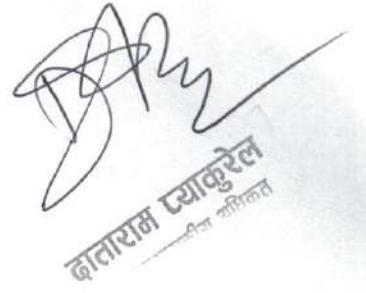 दाताराम प्याकुरेल
अधिकृत